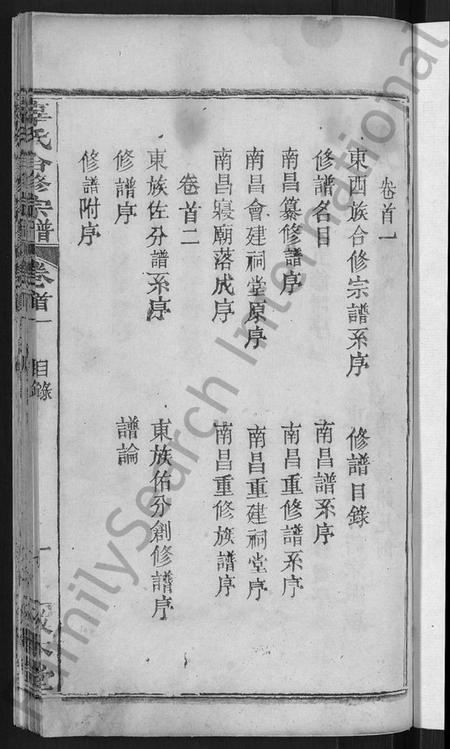 卷首一
東西族合修宗譜系序 修譜目錄
修譜名目 南昌譜系序
南昌纂修譜序 南昌重修譜系序
南昌會建祠堂原序 南昌重建祠堂序
南昌寢廟落成序 南昌重修族譜序
卷首二
東族佐分譜系序 東族佑分創修譜序
修譜序 譜論
修譜附序
氏合修宗譜 卷首一 目錄 一 本堂
FamilySearch International